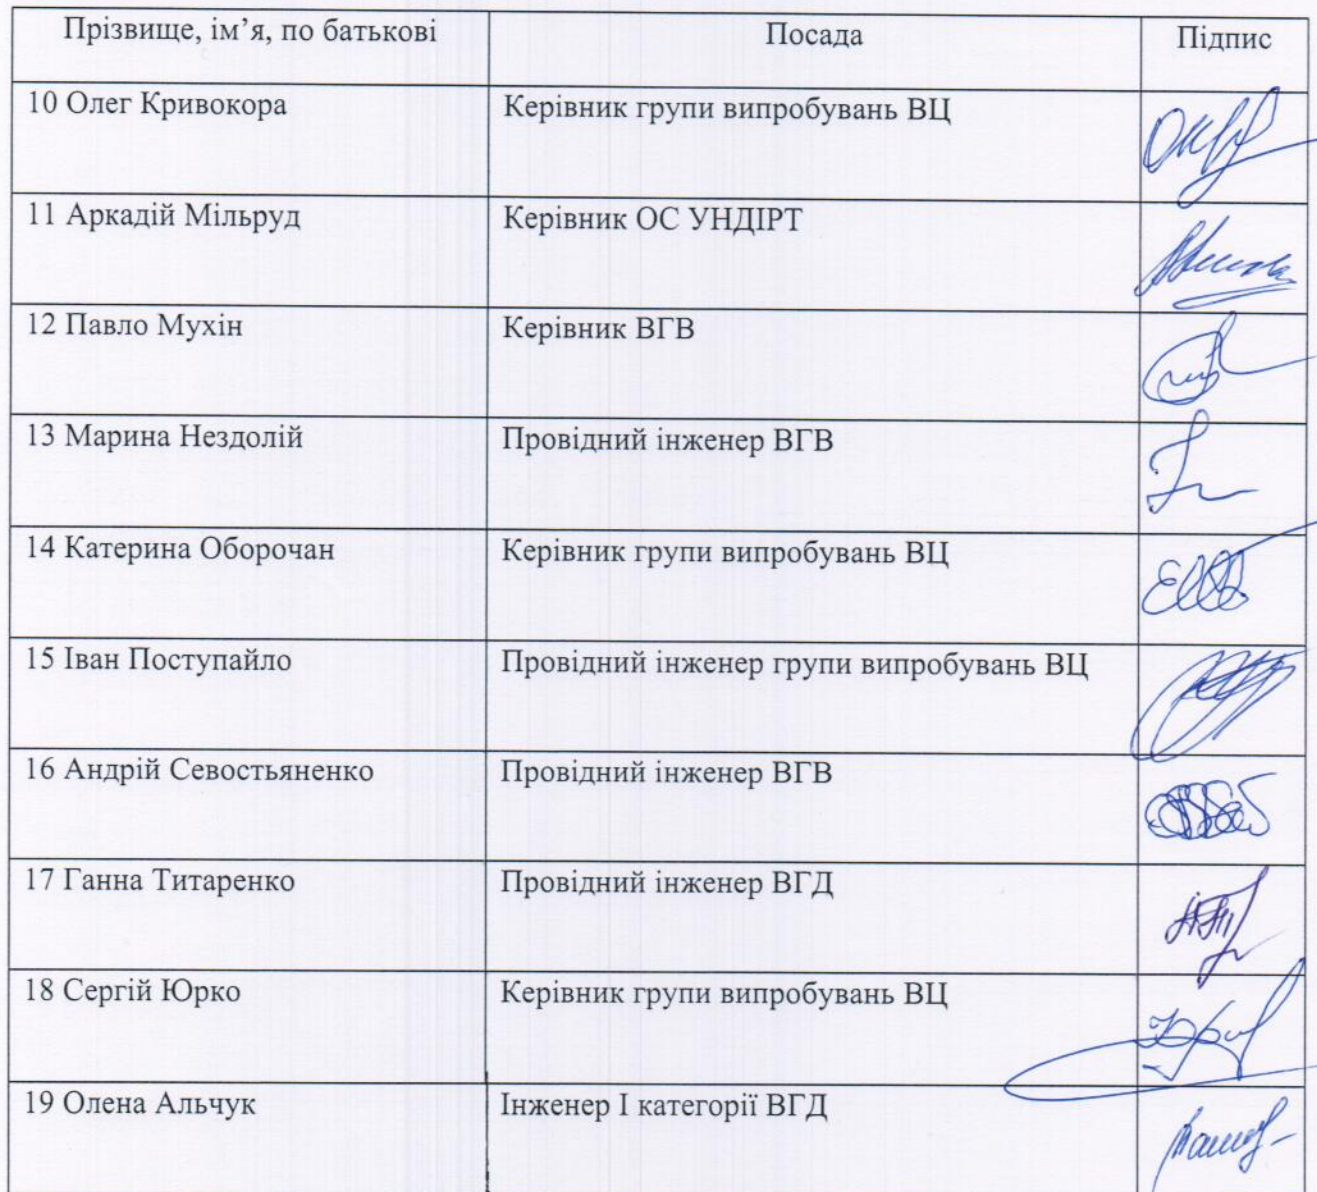 Прізвище, ім’я, по батькові Посада Підпис
10 Олег Кривокора Керівник групи випробувань ВЦ
11 Аркадій Мільруд Керівник ОС УНДІРТ
12 Павло Мухін Керівник ВГВ
13 Марина Нездолій Провідний інженер ВГВ
14 Катерина Оборочан Керівник групи випробувань ВЦ
15 Іван Поступайло Провідний інженер групи випробувань ВЦ
16 Андрій Севостьяненко Провідний інженер ВГВ
17 Ганна Титаренко Провідний інженер ВГД
18 Сергій Юрко Керівник групи випробувань ВЦ
19 Олена Альчук Інженер І категорії ВГД